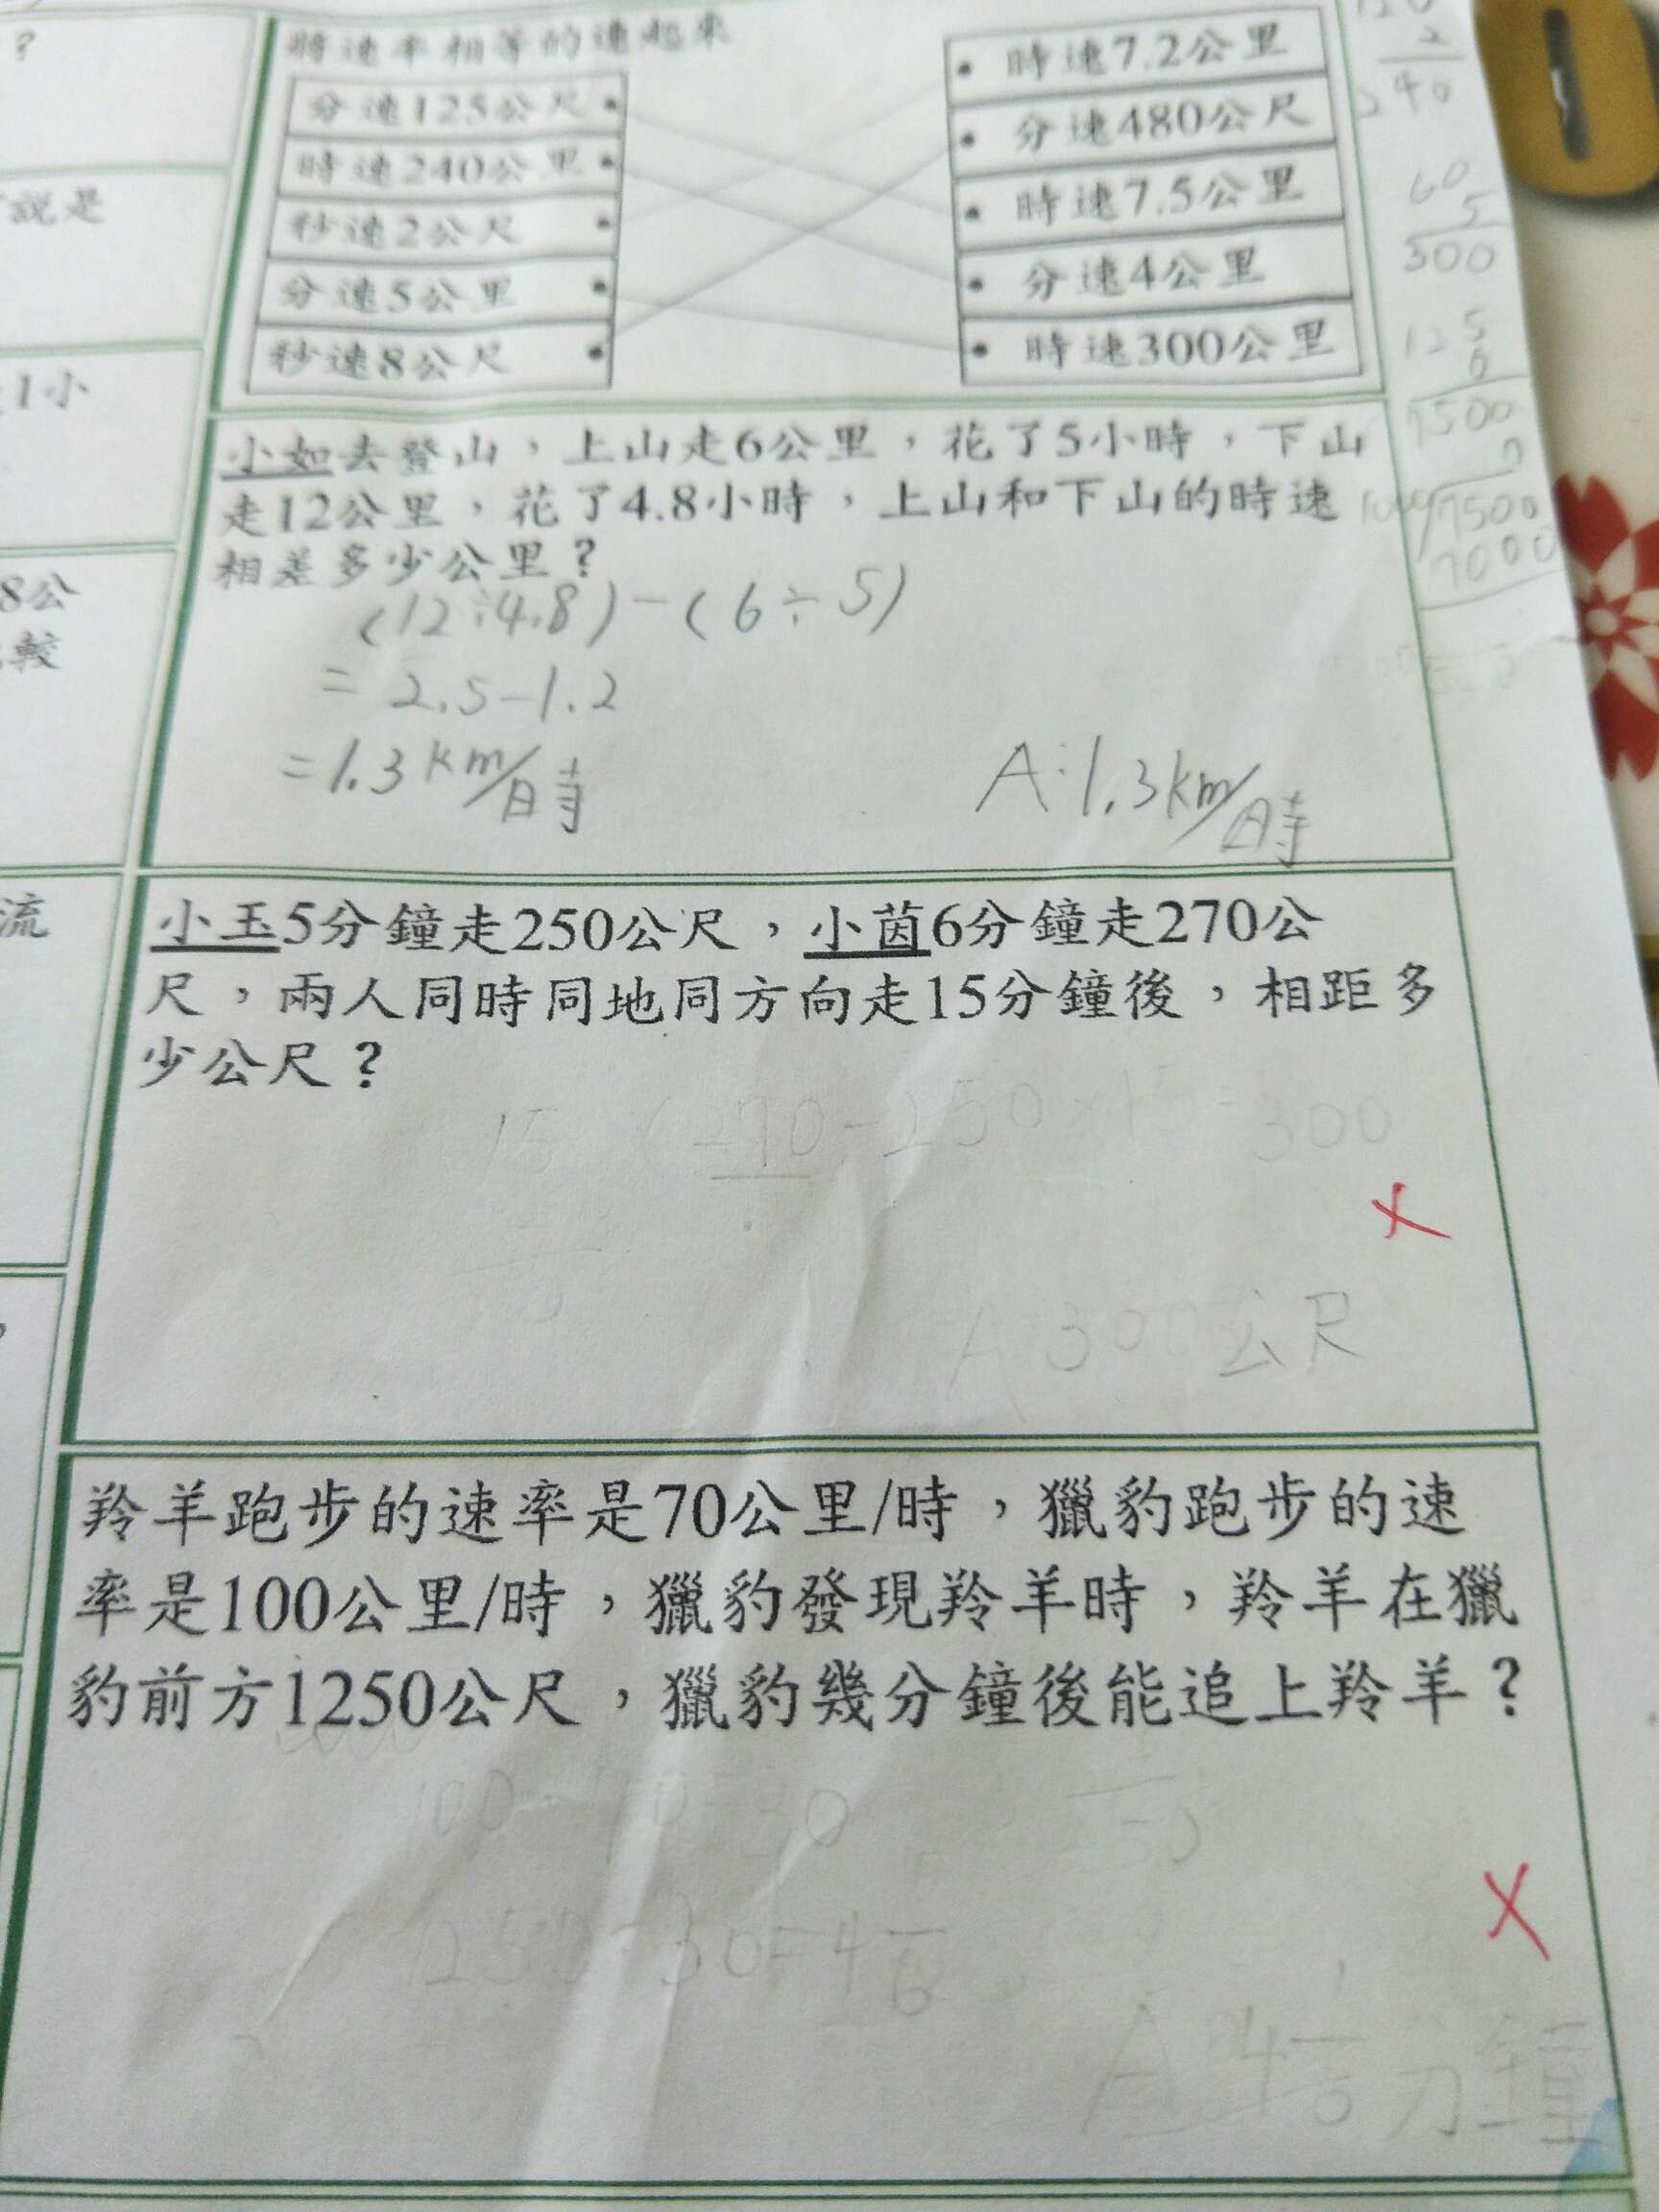 ?
說是
1小
8公
較
流
將速率相等的連起來
分速125公尺
時速240公里
秒速2公尺
分速5公里
秒速8公尺
時速7.2公里
分速480公尺
時速7.5公里
分速4公里
時速300公里
2
240
60
5
300
125
6
7500
7
1000 7500
7000
小如去登山，上山走6公里，花了5小時，下山
走12公里，花了4.8小時，上山和下山的時速
相差多少公里？
(12÷4.8)-(6÷5)
=2.5-1.2
=1.3km/時
A:1.3km/時
小玉5分鐘走250公尺，小茵6分鐘走270公
尺，兩人同時同地同方向走15分鐘後，相距多
少公尺？
15×270-250×15=300
A:300公尺
羚羊跑步的速率是70公里/時，獵豹跑步的速
率是100公里/時，獵豹發現羚羊時，羚羊在獵
豹前方1250公尺，獵豹幾分鐘後能追上羚羊？
100-70=30
50
125 30=4 6
A:4 1/6分鐘